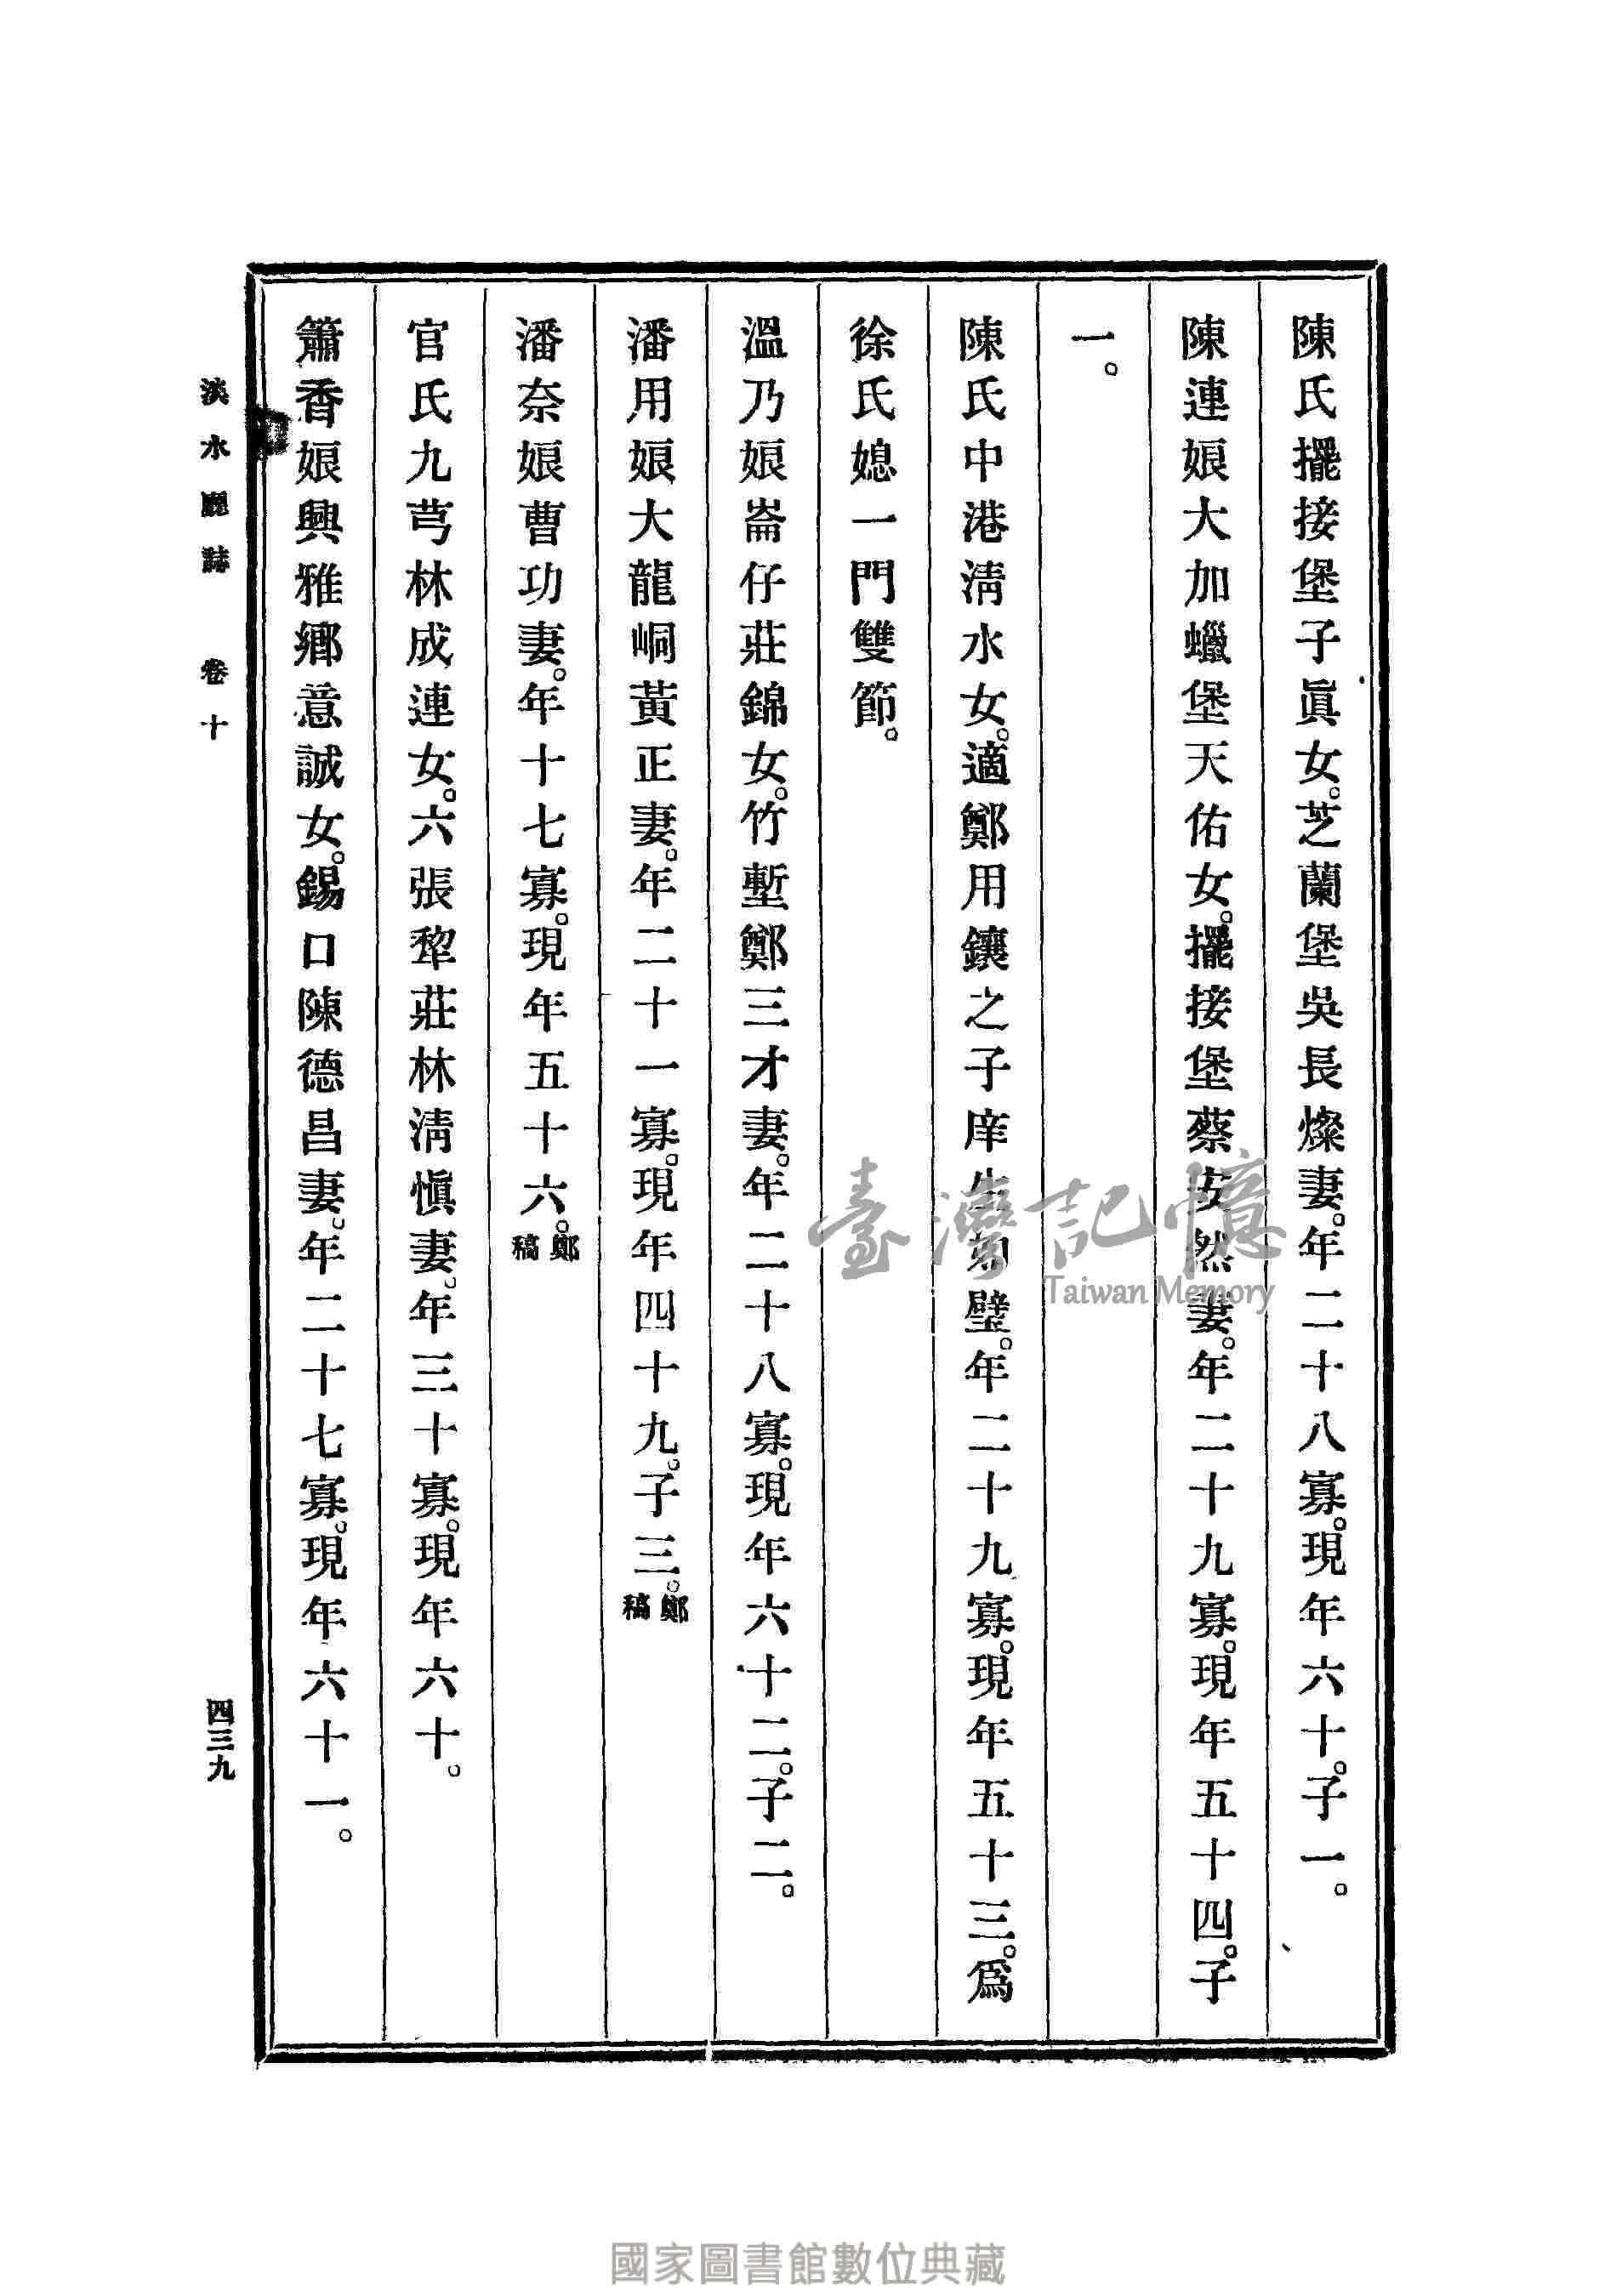 陳氏擺接堡子眞女。芝蘭堡吳長燦妻。年二十八寡。現年六十。子一。
陳連娘大加蠟堡天佑女。擺接堡蔡安然妻。年二十九寡。現年五十四。子
一。
陳氏中港淸水女。適鄭用鑲之子庠生如璧。年二十九寡。現年五十三。爲
徐氏媳一門雙節。
溫乃娘崙仔莊錦女。竹塹鄭三才妻。年二十八寡。現年六十二。子二。
潘用娘大龍峒黃正妻。年二十一寡。現年四十九。子三。鄭稿
潘奈娘曹功妻。年十七寡。現年五十六。鄭稿
官氏九芎林成連女。六張犂莊林淸愼妻。年三十寡。現年六十。
簫香娘興雅鄉意誠女。錫口陳德昌妻。年二十七寡。現年六十一。
淡水廳誌 卷十
四三九
臺灣記憶
Taiwan Memory
國家圖書館數位典藏